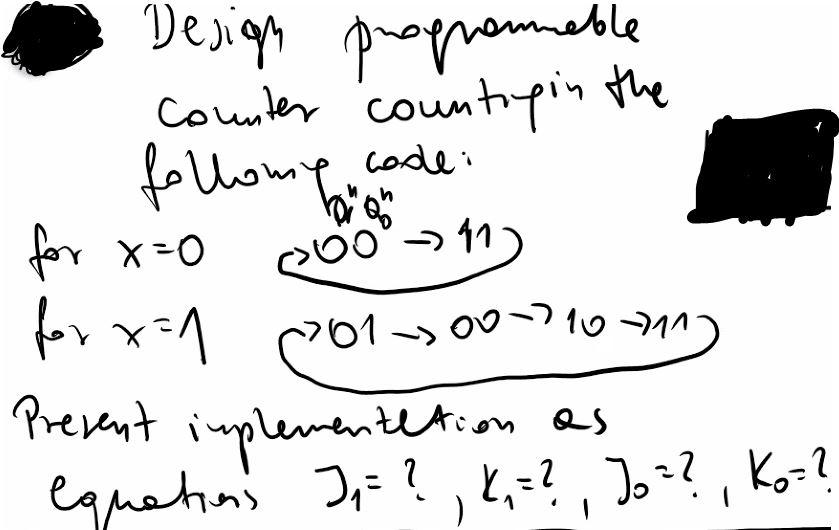 Design programmable
counter counting in the
following code:
Q₁ⁿ Q₀ⁿ
for x=0 →00 → 11
for x=1 →01 → 00 → 10 → 11
Present implementation as
equations J₁=? , K₁=? , J₀=? , K₀=?